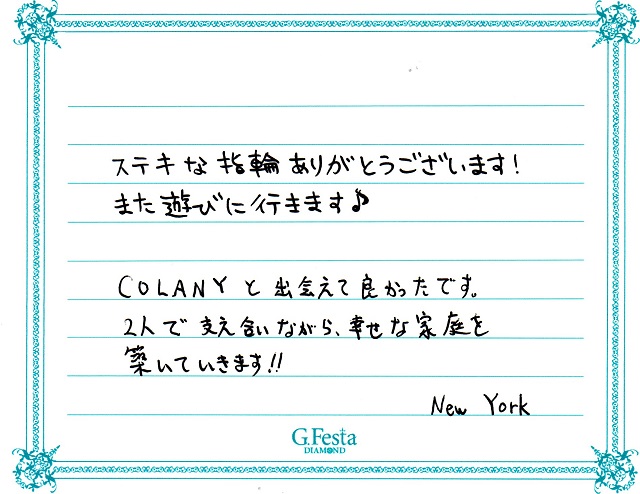 ステキな指輪ありがとうございます!
また遊びに行きます♪
COLANYと出会えて良かったです。
2人で支え合いながら、幸せな家庭を
築いていきます!!
New York
G.Festa
DIAMOND